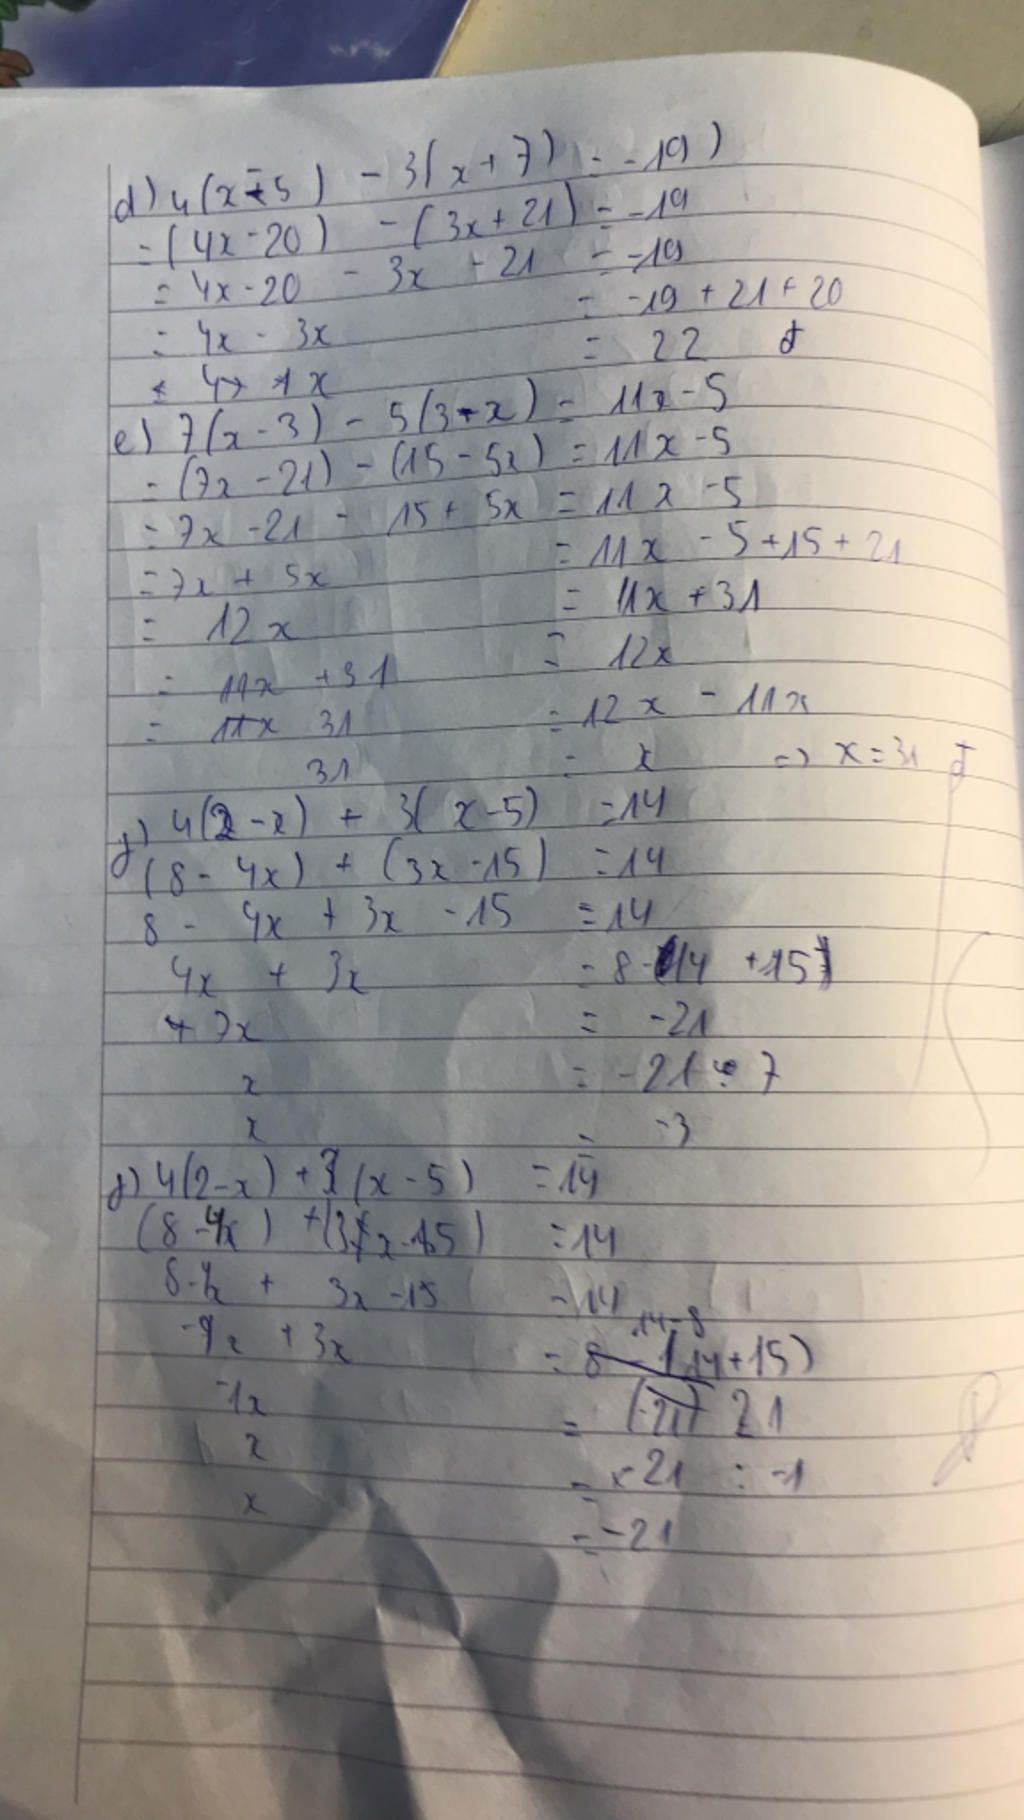 d) 4(x-5) - 3(x+7) = -19)
= (4x-20) - (3x+21) = -19
= 4x-20 - 3x - 21 = -19
= 4x - 3x = -19 + 21 + 20
= 4x - 3x = 22 đ
1x
e) 7(x-3) - 5(3-x) = 11x-5
= (7x-21) - (15-5x) = 11x-5
= 7x-21 - 15 + 5x = 11x-5
= 7x + 5x = 11x - 5+15+21
= 12x = 11x +31
= 11x +31 = 12x
= 11x 31 = 12x - 11x
31 = x => x = 31 đ
f) 4(2-x) + 3(x-5) = 14
(8 - 4x) + (3x-15) = 14
8 - 4x + 3x - 15 = 14
4x + 3x = 8-(14 +15)
+ 7x = -21
x = -21 : 7
x = -3
f) 4(2-x) + 3(x-5) = 14
(8-4x) + (3x-15) = 14
8-4x + 3x-15 = 14
14-8
-4x + 3x = 8 - (14+15)
-1x = (-21) 21
x = 21 : -1
x = -21